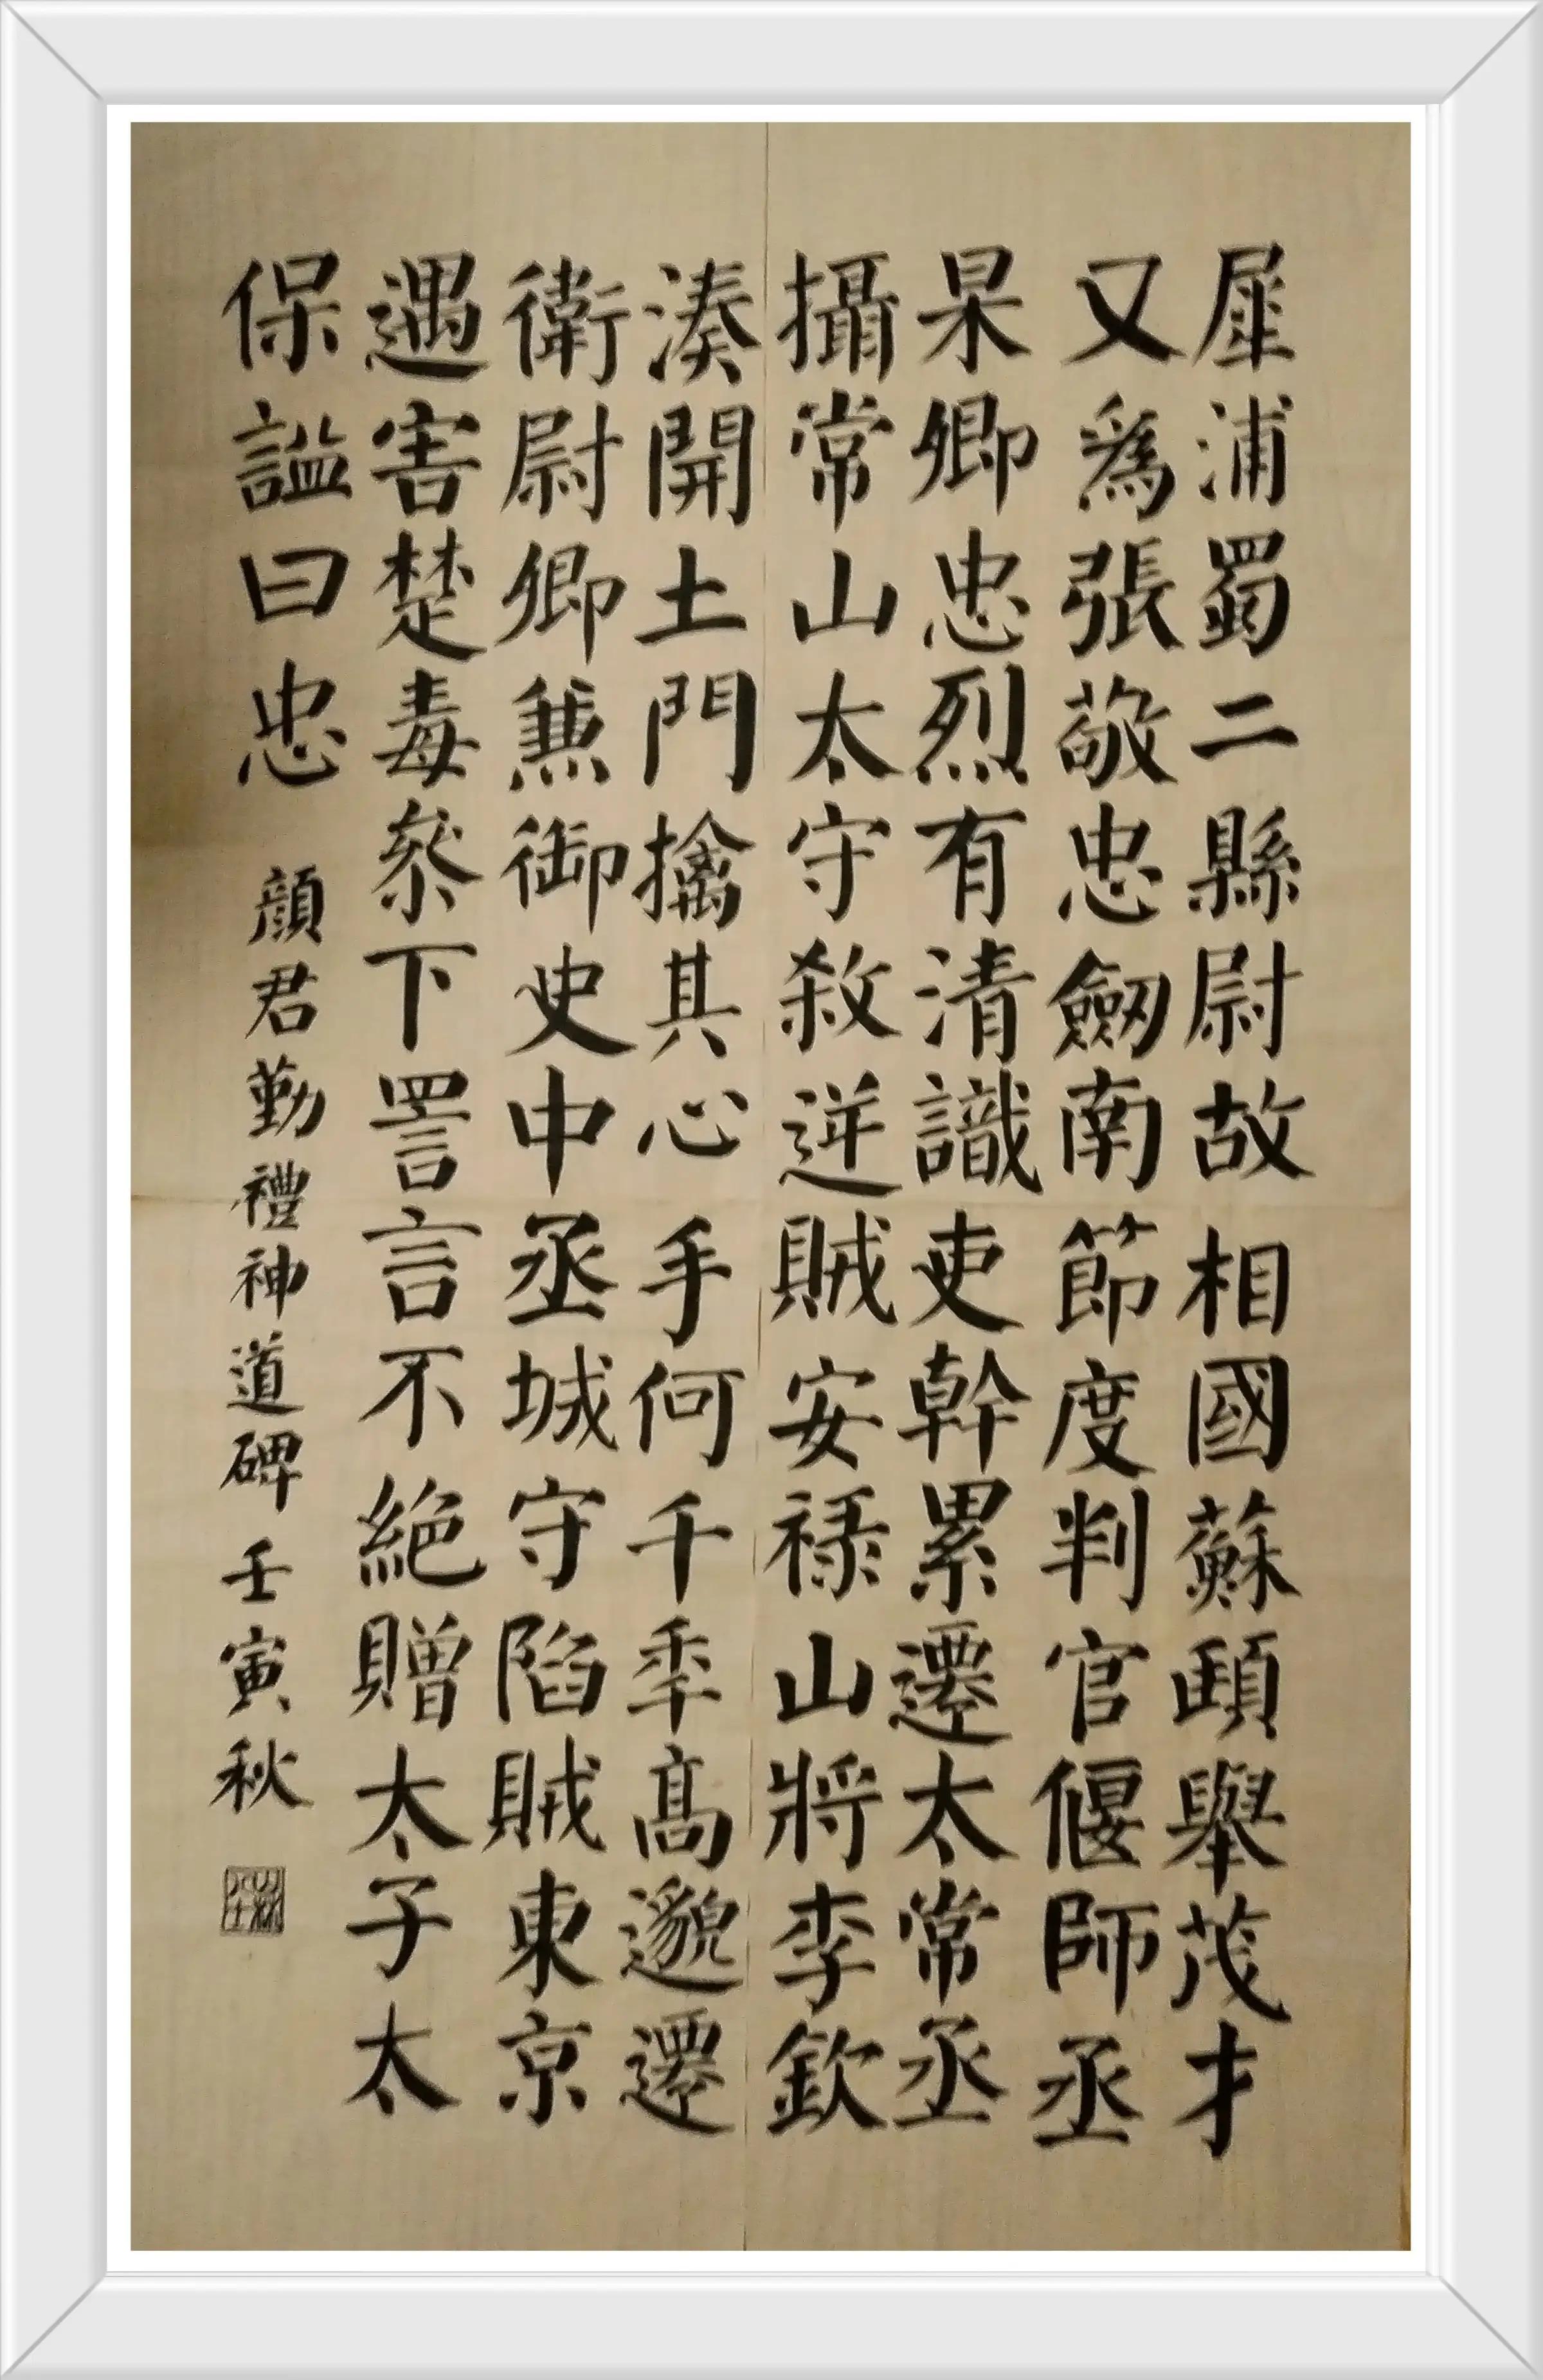 犀浦蜀二縣尉故相國蘇頲舉茂才
又為張敬忠劒南節度判官偃師丞
杲卿忠烈有清識吏幹累遷太常丞
攝常山太守殺逆賊安禄山將李欽
湊開土門擒其心手何千年高邈遷
衛尉卿兼御史中丞城守陷賊東京
遇害楚毒參下詈言不絕贈太子太
保謚曰忠
顔君勤禮神道碑 壬寅秋